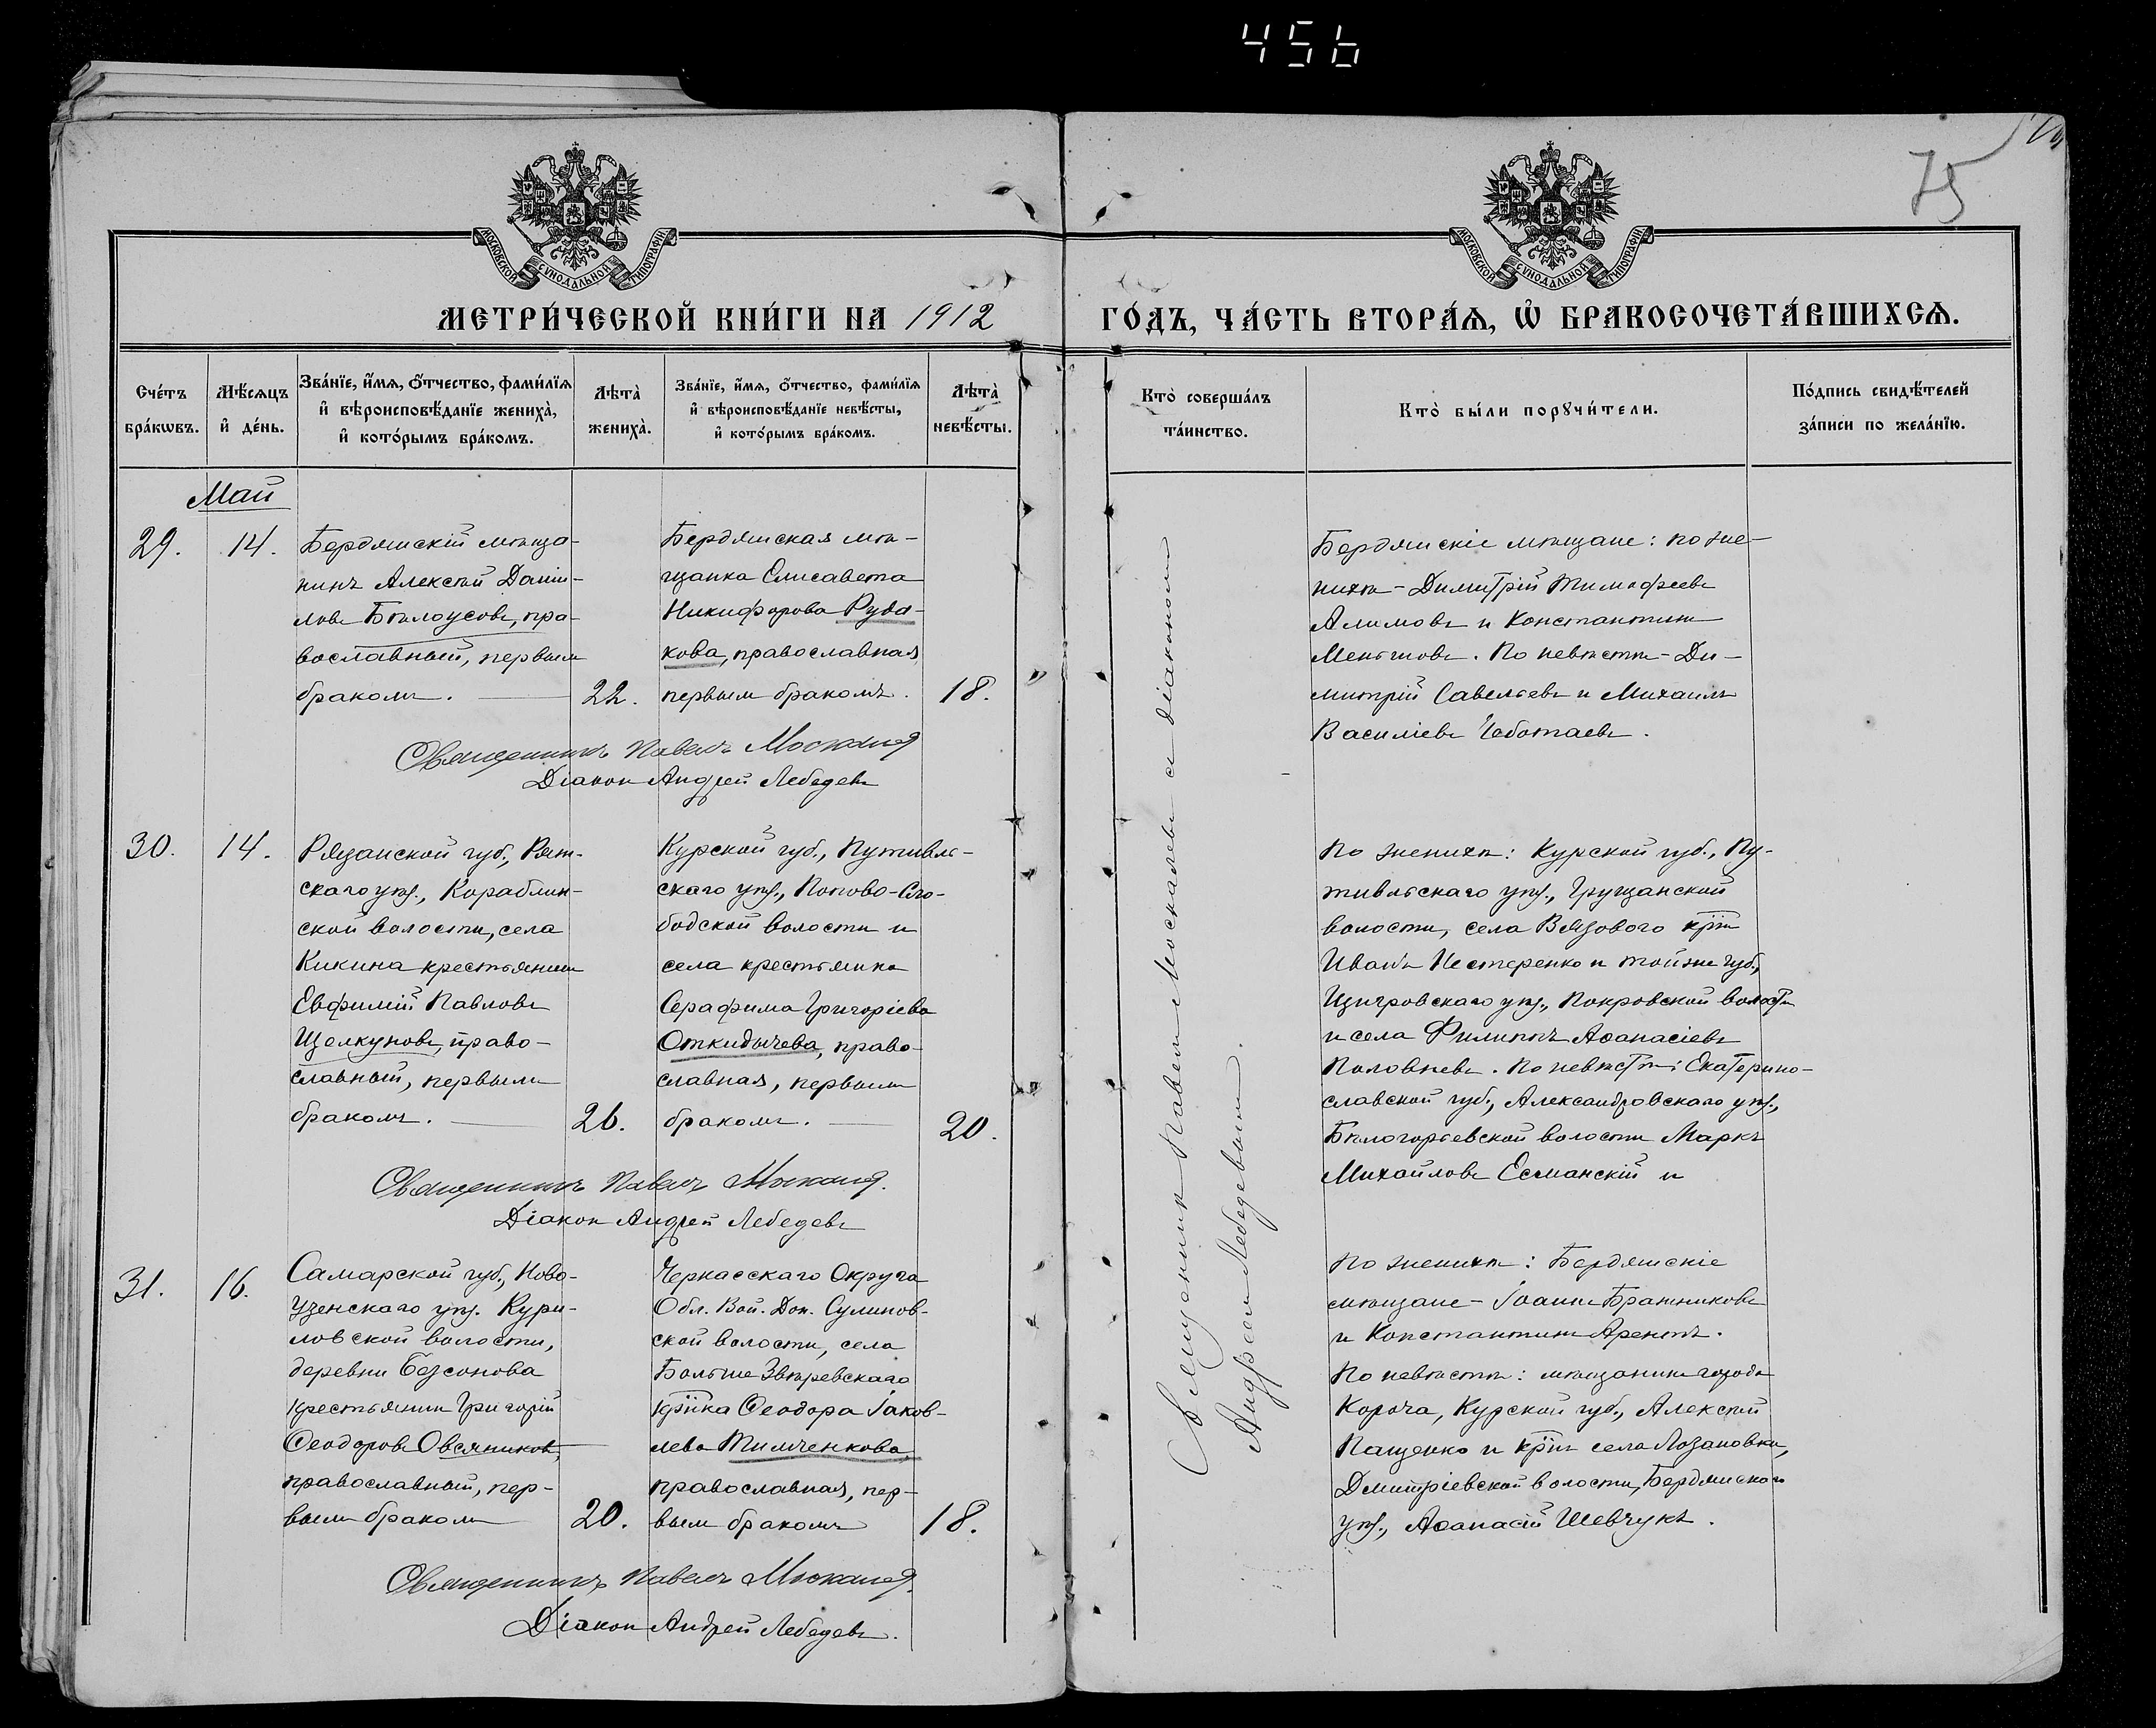 456
75
МОСКОВСКОЙ СѴНОДАЛЬНОЙ ТИПОГРАФІИ
МОСКОВСКОЙ СѴНОДАЛЬНОЙ ТИПОГРАФІИ
МЕТРИ́ЧЕСКОЙ КНИ́ГИ НА 1912
ГО́ДЪ, ЧА́СТЬ ВТОРА́Ѧ, Ѡ҆ БРАКОСОЧЕТА́ВШИХСѦ.
Сче́тъ
бра́кѡвъ.
Мѣ́сѧцъ
и҆ де́нь.
Зва́нїе, и҆́мѧ, ѻ҆́тчество, фами́лїѧ
и҆ вѣроисповѣ́данїе жениха̀,
и҆ кото́рымъ бра́комъ.
Лѣта̀
жениха̀.
Зва́нїе, и҆́мѧ, ѻ҆́тчество, фами́лїѧ
и҆ вѣроисповѣ́данїе невѣ́сты,
и҆ кото́рымъ бра́комъ.
Лѣта̀
невѣ́сты.
Кто̀ соверша́лъ
та́инство.
Кто̀ бы́ли порꙋчи́тели.
По́дпись свидѣ́телей
за́писи по жела́нїю.
Май
29.
14.
Бердянскій мѣща-
нинъ Алексѣй Даніи-
ловъ Бѣлоусовъ, пра-
вославный, первымъ
бракомъ.
22.
Бердянская мѣ-
щанка Елисавета
Никифорова Руда-
кова, православная
первымъ бракомъ.
18.
Священникъ Павелъ
Діаконъ Андрей Лебедевъ
Бердянскіе мѣщане: по же-
нихѣ - Димитрій Тимофеевъ
Алимовъ и Константинъ
Меньшовъ. По невѣстѣ - Ди-
митрій Савельевъ и Михаилъ
Василіевъ Чеботаевъ.
30.
14.
Рязанской губ., Ряж-
скаго уѣз., Кораблин-
ской волости, села
Кикина крестьянинъ
Евфимій Павловъ
Щелкуновъ, право-
славный, первымъ
бракомъ.
26.
Курской губ., Путивль-
скаго уѣз., Попово-Сло-
бодской волости и
села крестьянка
Серафима Григоріева
Откидычева, право-
славная, первымъ
бракомъ.
20.
Священникъ Павелъ
Діаконъ Андрей Лебедевъ
По женихѣ: Курской губ., Пу-
тивльскаго уѣз., Груzчанской
волости, села Вязового кр̄нъ
Иванъ Нестеренко и той же губ.,
Щигровскаго уѣз., Покровской волости
и села Филиппъ Аѳанасіевъ
Половневъ. По невѣстѣ: Екатерино-
славской губ., Александровскаго уѣз.,
Бѣлогорьевской волости Маркъ
Михайловъ Есманскій и
31.
16.
Самарской губ., Ново-
узенскаго уѣз. Кури-
ловской волости,
деревни Безсонова
крестьянинъ Григорій
Ѳеодоровъ Овсяниковъ,
православный, пер-
вымъ бракомъ
20.
Черкасскаго Округа
Обл. Вой. Дон. Сулинов-
ской волости, села
Больше Звѣревскаго
кр̄нка Ѳеодора Іаков-
лева Тимченкова,
православная, пер-
вымъ бракомъ
18.
Священникъ Павелъ
Діаконъ Андрей Лебедевъ.
По женихѣ: Бердянскіе
мѣщане - Іоаннъ Бражниковъ
и Константинъ Арентъ.
По невѣстѣ: мѣщанинъ города
Короча, Курской губ., Алексѣй
Пащенко и кр̄нъ села Лозановки,
Дмитріевской волости, Бердянскаго
уѣз., Аѳанасій Шевчукъ.
Священникъ Павелъ Москалевъ съ діакономъ
Андреемъ Лебедевымъ.